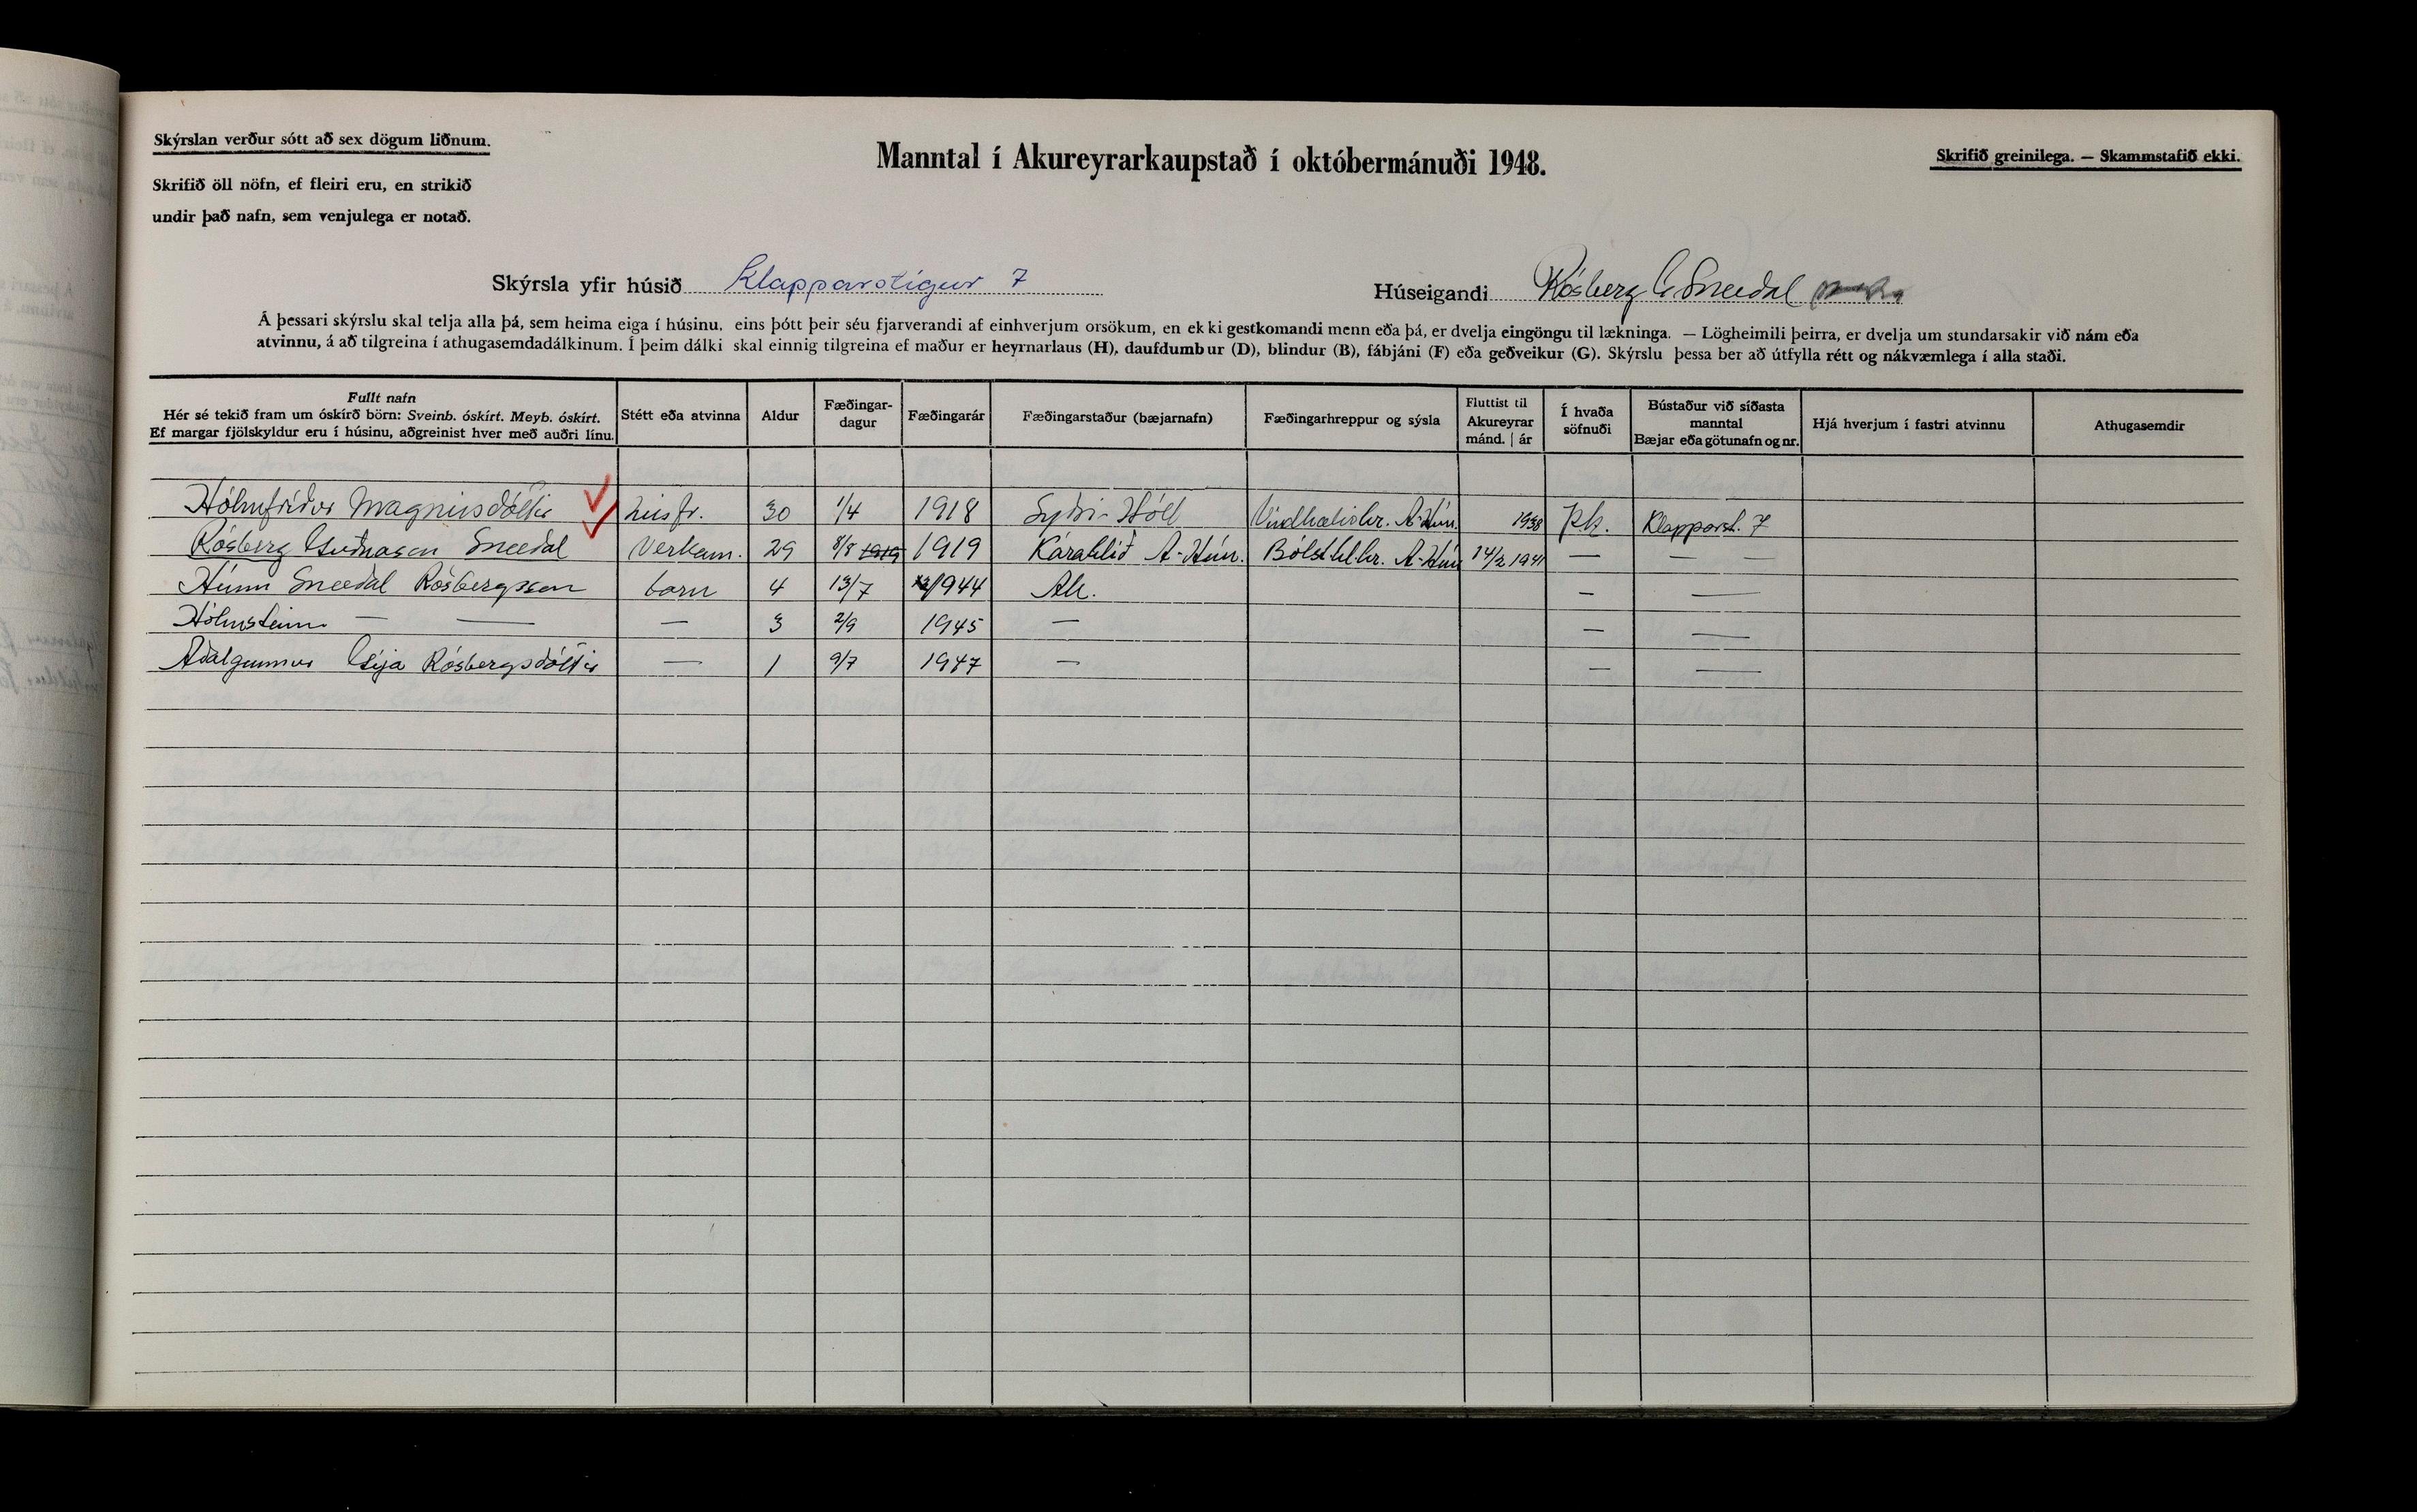 Skýrslan verður sótt að sex dögum liðnum.
Skrifið öll nöfn, ef fleiri eru, en strikið
undir það nafn, sem venjulega er notað.
Manntal í Akureyrarkaupstað í októbermánuði 1948.
Skrifið greinilega. — Skammstafið ekki.
Skýrsla yfir húsið Klapparstígur 7
Húseigandi Rósberg G. Snædal
Á þessari skýrslu skal telja alla þá, sem heima eiga í húsinu, eins þótt þeir séu fjarverandi af einhverjum orsökum, en ekki gestkomandi menn eða þá, er dvelja eingöngu til lækninga. — Lögheimili þeirra, er dvelja um stundarsakir við nám eða
atvinnu, á að tilgreina í athugasemdadálkinum. Í þeim dálki skal einnig tilgreina ef maður er heyrnarlaus (H), daufdumbur (D), blindur (B), fábjáni (F) eða geðveikur (G). Skýrslu þessa ber að útfylla rétt og nákvæmlega í alla staði.
Fullt nafn
Hér sé tekið fram um óskírð börn: Sveinb. óskírt. Meyb. óskírt.
Ef margar fjölskyldur eru í húsinu, aðgreinist hver með auðri línu.
Stétt eða atvinna
Aldur
Fæðingar-
dagur
Fæðingarár
Fæðingarstaður (bæjarnafn)
Fæðingarhreppur og sýsla
Fluttist til
Akureyrar
mánd. | ár
Í hvaða
söfnuði
Bústaður við síðasta
manntal
Bæjar eða götunafn og nr.
Hjá hverjum í fastri atvinnu
Athugasemdir
Hólmfríður Magnúsdóttir húsfr. 30 1/4 1918 Syðri-Hóll Vindhælishr. A-Hún. 1938 Þk. Klapparst. 7
Rósberg Guðnason Snædal Verkam. 29 8/8 1919 1919 Kárahlíð A-Hún. Bólst.hl.hr. A-Hún 14/2 1941 — — —
Húnn Snædal Rósbergsson barn 4 13/7 1944 Ak. — —
Hólmsteinn — — — 3 2/9 1945 — — —
Aðalgunnur Gígja Rósbergsdóttir — 1 9/7 1947 — — —